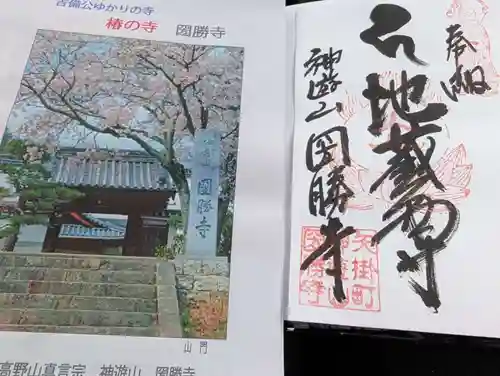 吉備公ゆかりの寺
椿の寺　圀勝寺
圀勝寺
山門
高野山真言宗　神遊山　圀勝寺
奉納
地蔵尊
神遊山圀勝寺
矢掛町